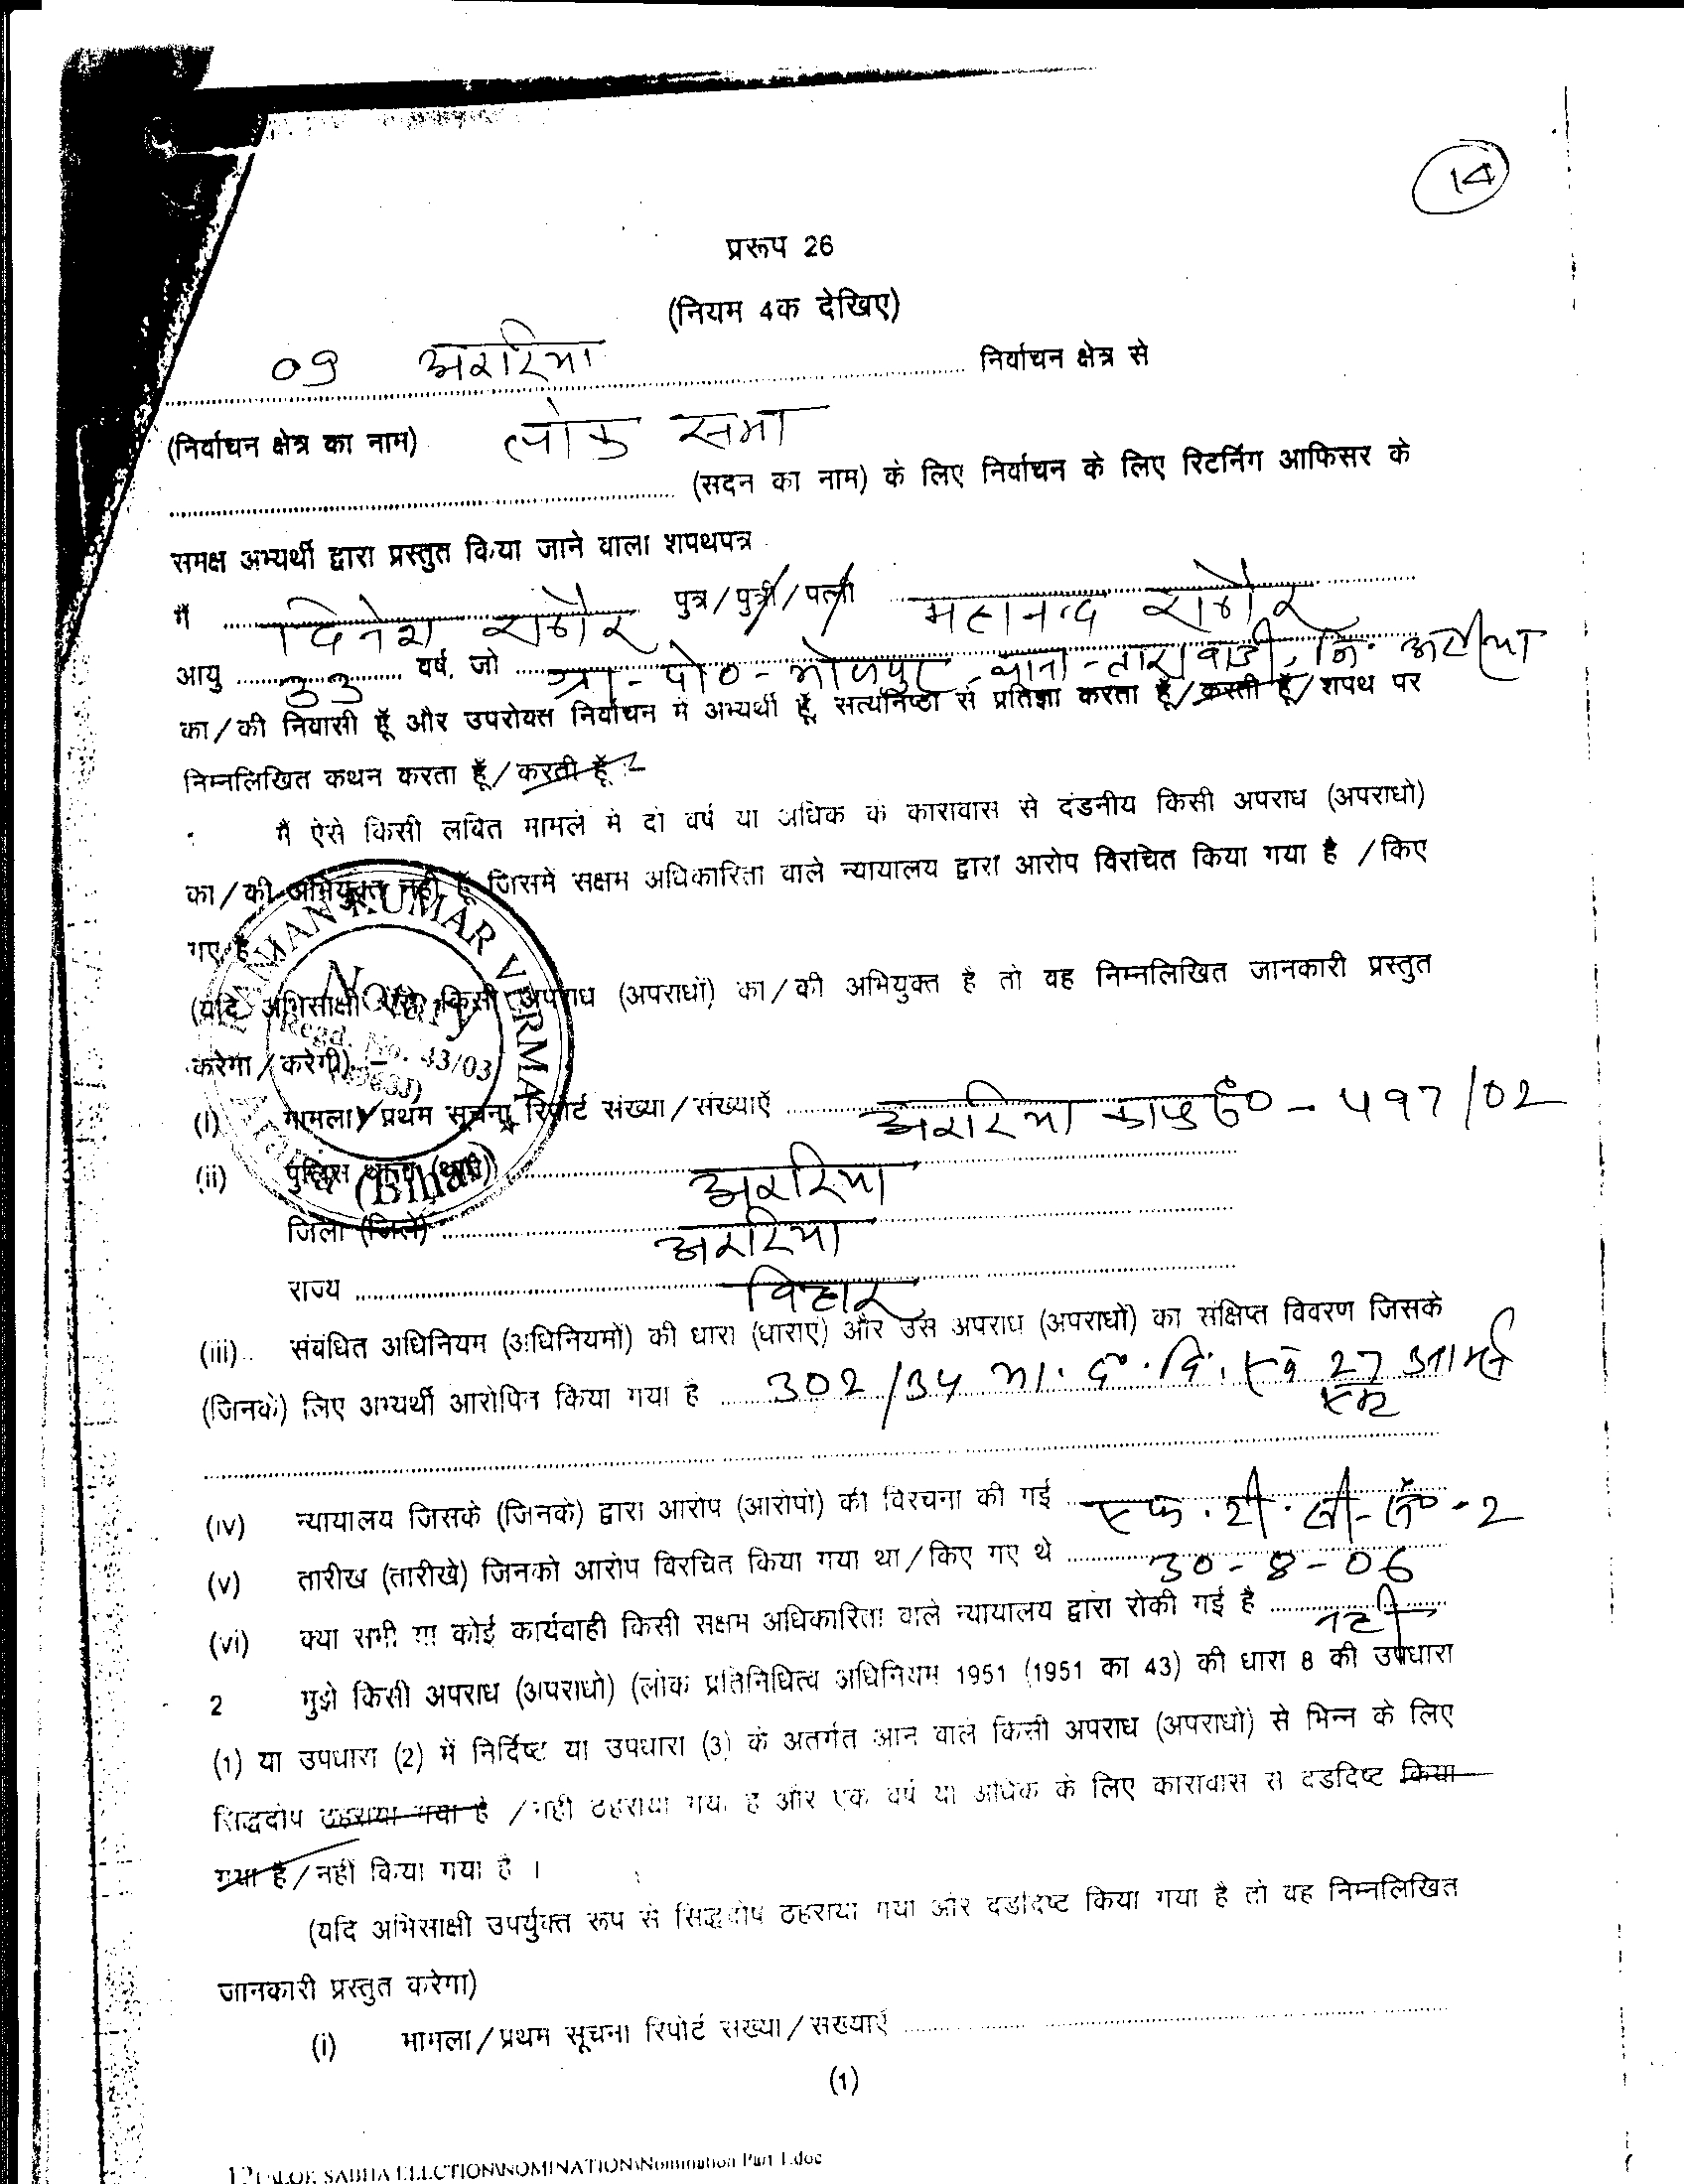 14
प्ररूप 26
(नियम 4क देखिए)
09 अररिया निर्वाचन क्षेत्र से
(निर्वाचन क्षेत्र का नाम) लोक सभा
(सदन का नाम) के लिए निर्वाचन के लिए रिटर्निंग आफिसर के
समक्ष अभ्यर्थी द्वारा प्रस्तुत किया जाने वाला शपथपत्र
मैं दिनेश राठौर पुत्र/पुत्री/पत्नी महानन्द राठौर
आयु 33 वर्ष, जो ग्रा-पो०-भोजपुर, थाना-ताराबाड़ी, जि. अररिया
का/की निवासी हूँ और उपरोक्त निर्वाचन में अभ्यर्थी हूँ, सत्यनिष्ठा से प्रतिज्ञा करता हूँ/करती हूँ/शपथ पर
निम्नलिखित कथन करता हूँ/करती हूँ :-
मैं ऐसे किसी लंबित मामले में दो वर्ष या अधिक के कारावास से दंडनीय किसी अपराध (अपराधों)
का/की अभियुक्त नहीं हूँ जिसमें सक्षम अधिकारिता वाले न्यायालय द्वारा आरोप विरचित किया गया है /किए
गए है
(यदि अभिसाक्षी ऐसे किसी अपराध (अपराधों) का/की अभियुक्त है तो वह निम्नलिखित जानकारी प्रस्तुत
करेगा/करेगी) –
KUMAR VERMA
Notary
Regd. No. 43/03
(Bihar)
(i) मामला/प्रथम सूचना रिपोर्ट संख्या/संख्याएँ अररिया काण्ड सं० - 497/02
(ii) पुलिस थाना (थाने) अररिया
जिला (जिले) अररिया
राज्य बिहार
(iii) संबंधित अधिनियम (अधिनियमों) की धारा (धाराएं) और उस अपराध (अपराधों) का संक्षिप्त विवरण जिसके
(जिनके) लिए अभ्यर्थी आरोपित किया गया है 302/34 भा. द. वि. एवं 27 आर्म्स
एक्ट
(iv) न्यायालय जिसके (जिनके) द्वारा आरोप (आरोपों) की विरचना की गई एफ. टी. सी- नं० - 2
(v) तारीख (तारीखें) जिनको आरोप विरचित किया गया था/किए गए थे 30-8-06
(vi) क्या सभी या कोई कार्यवाही किसी सक्षम अधिकारिता वाले न्यायालय द्वारा रोकी गई है नहीं
2 मुझे किसी अपराध (अपराधों) (लोक प्रतिनिधित्व अधिनियम 1951 (1951 का 43) की धारा 8 की उपधारा
(1) या उपधारा (2) में निर्दिष्ट या उपधारा (3) के अतर्गत आन वाले किसी अपराध (अपराधों) से भिन्न के लिए
सिद्धदोष ठहराया गया है /नहीं ठहराया गया है और एक वर्ष या अधिक के लिए कारावास से दंडदिष्ट किया
गया है/नहीं किया गया है ।
(यदि अभिसाक्षी उपर्युक्त रूप से सिद्धदोष ठहराया गया और दंडादिष्ट किया गया है तो वह निम्नलिखित
जानकारी प्रस्तुत करेगा)
(i) मामला/प्रथम सूचना रिपोर्ट संख्या/संख्याएँ
(1)
SABHA ELECTION\NOMINATION\Nomination Part 1.doc